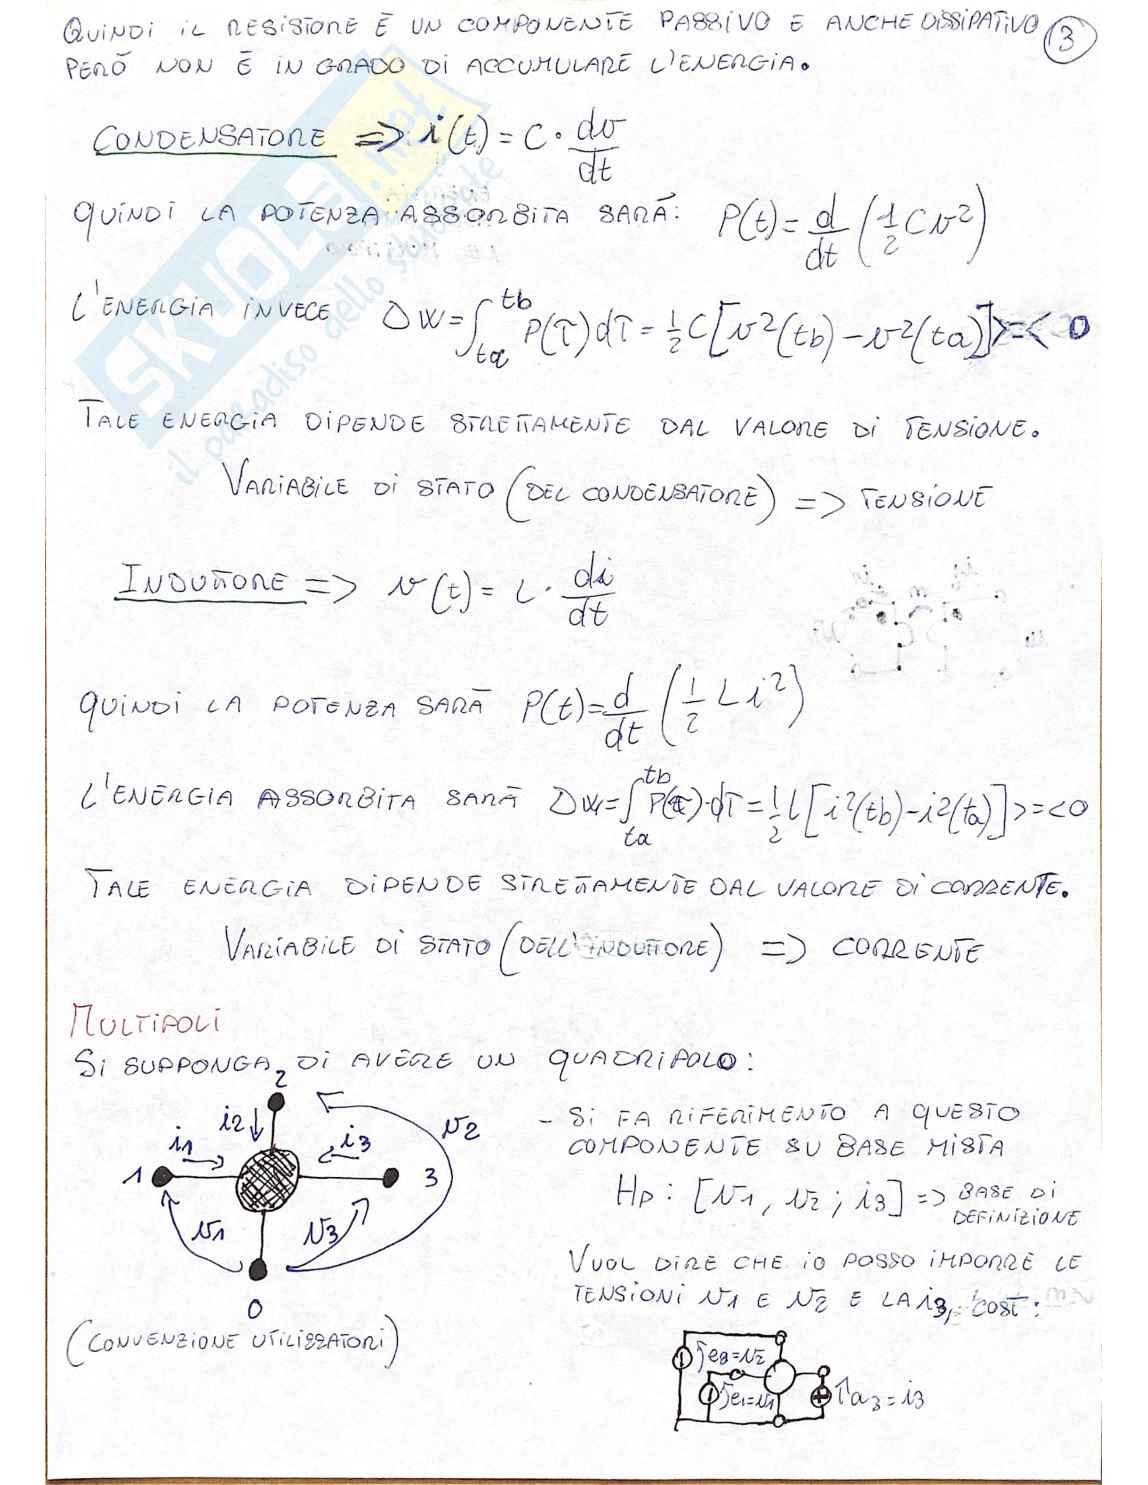 QUINDI IL RESISTORE È UN COMPONENTE PASSIVO E ANCHE DISSIPATIVO
3
PERÒ NON È IN GRADO DI ACCUMULARE L'ENERGIA.
CONDENSATORE => i(t) = C · dv/dt
QUINDI LA POTENZA ASSORBITA SARÀ: P(t) = d/dt (1/2 C v²)
L'ENERGIA INVECE ΔW = ∫ta^tb P(τ)dτ = 1/2 C [v²(tb) - v²(ta)] >=< 0
TALE ENERGIA DIPENDE STRETTAMENTE DAL VALORE DI TENSIONE.
VARIABILE DI STATO (DEL CONDENSATORE) => TENSIONE
INDUTTORE => v(t) = L · di/dt
QUINDI LA POTENZA SARÀ P(t) = d/dt (1/2 L i²)
L'ENERGIA ASSORBITA SARÀ ΔW = ∫ta^tb P(τ)·dτ = 1/2 L [i²(tb) - i²(ta)] >=< 0
TALE ENERGIA DIPENDE STRETTAMENTE DAL VALORE DI CORRENTE.
VARIABILE DI STATO (DELL'INDUTTORE) => CORRENTE
MULTIPOLI
SI SUPPONGA DI AVERE UN QUADRIPOLO:
2
i2
i1
i3
v2
1
3
v1
v3
0
(CONVENZIONE UTILIZZATORI)
- SI FA RIFERIMENTO A QUESTO
COMPONENTE SU BASE MISTA
HP: [v1, v2; i3] => BASE DI
DEFINIZIONE
VUOL DIRE CHE IO POSSO IMPORRE LE
TENSIONI v1 E v2 E LA i3, COSÌ:
e2=v2
e1=v1
a3=i3
SKUOLA.net
il paradiso dello studente